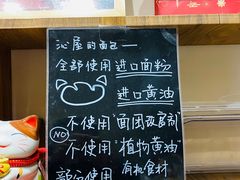 沁屋的面包——
全部使用进口面粉
进口黄油
不使用"面团改良剂
NO
不使用"植物黄油"
部分使用 有机食材